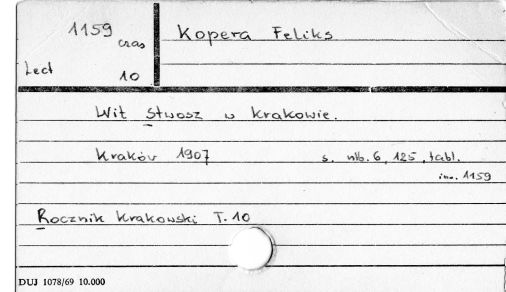 1159 czas
Lect 10
Kopera Feliks
Wit Stwosz w Krakowie.
Kraków 1907 s. nlb. 6, 125, tabl.
inw. 1159
Rocznik Krakowski T. 10
DUJ 1078/69 10.000